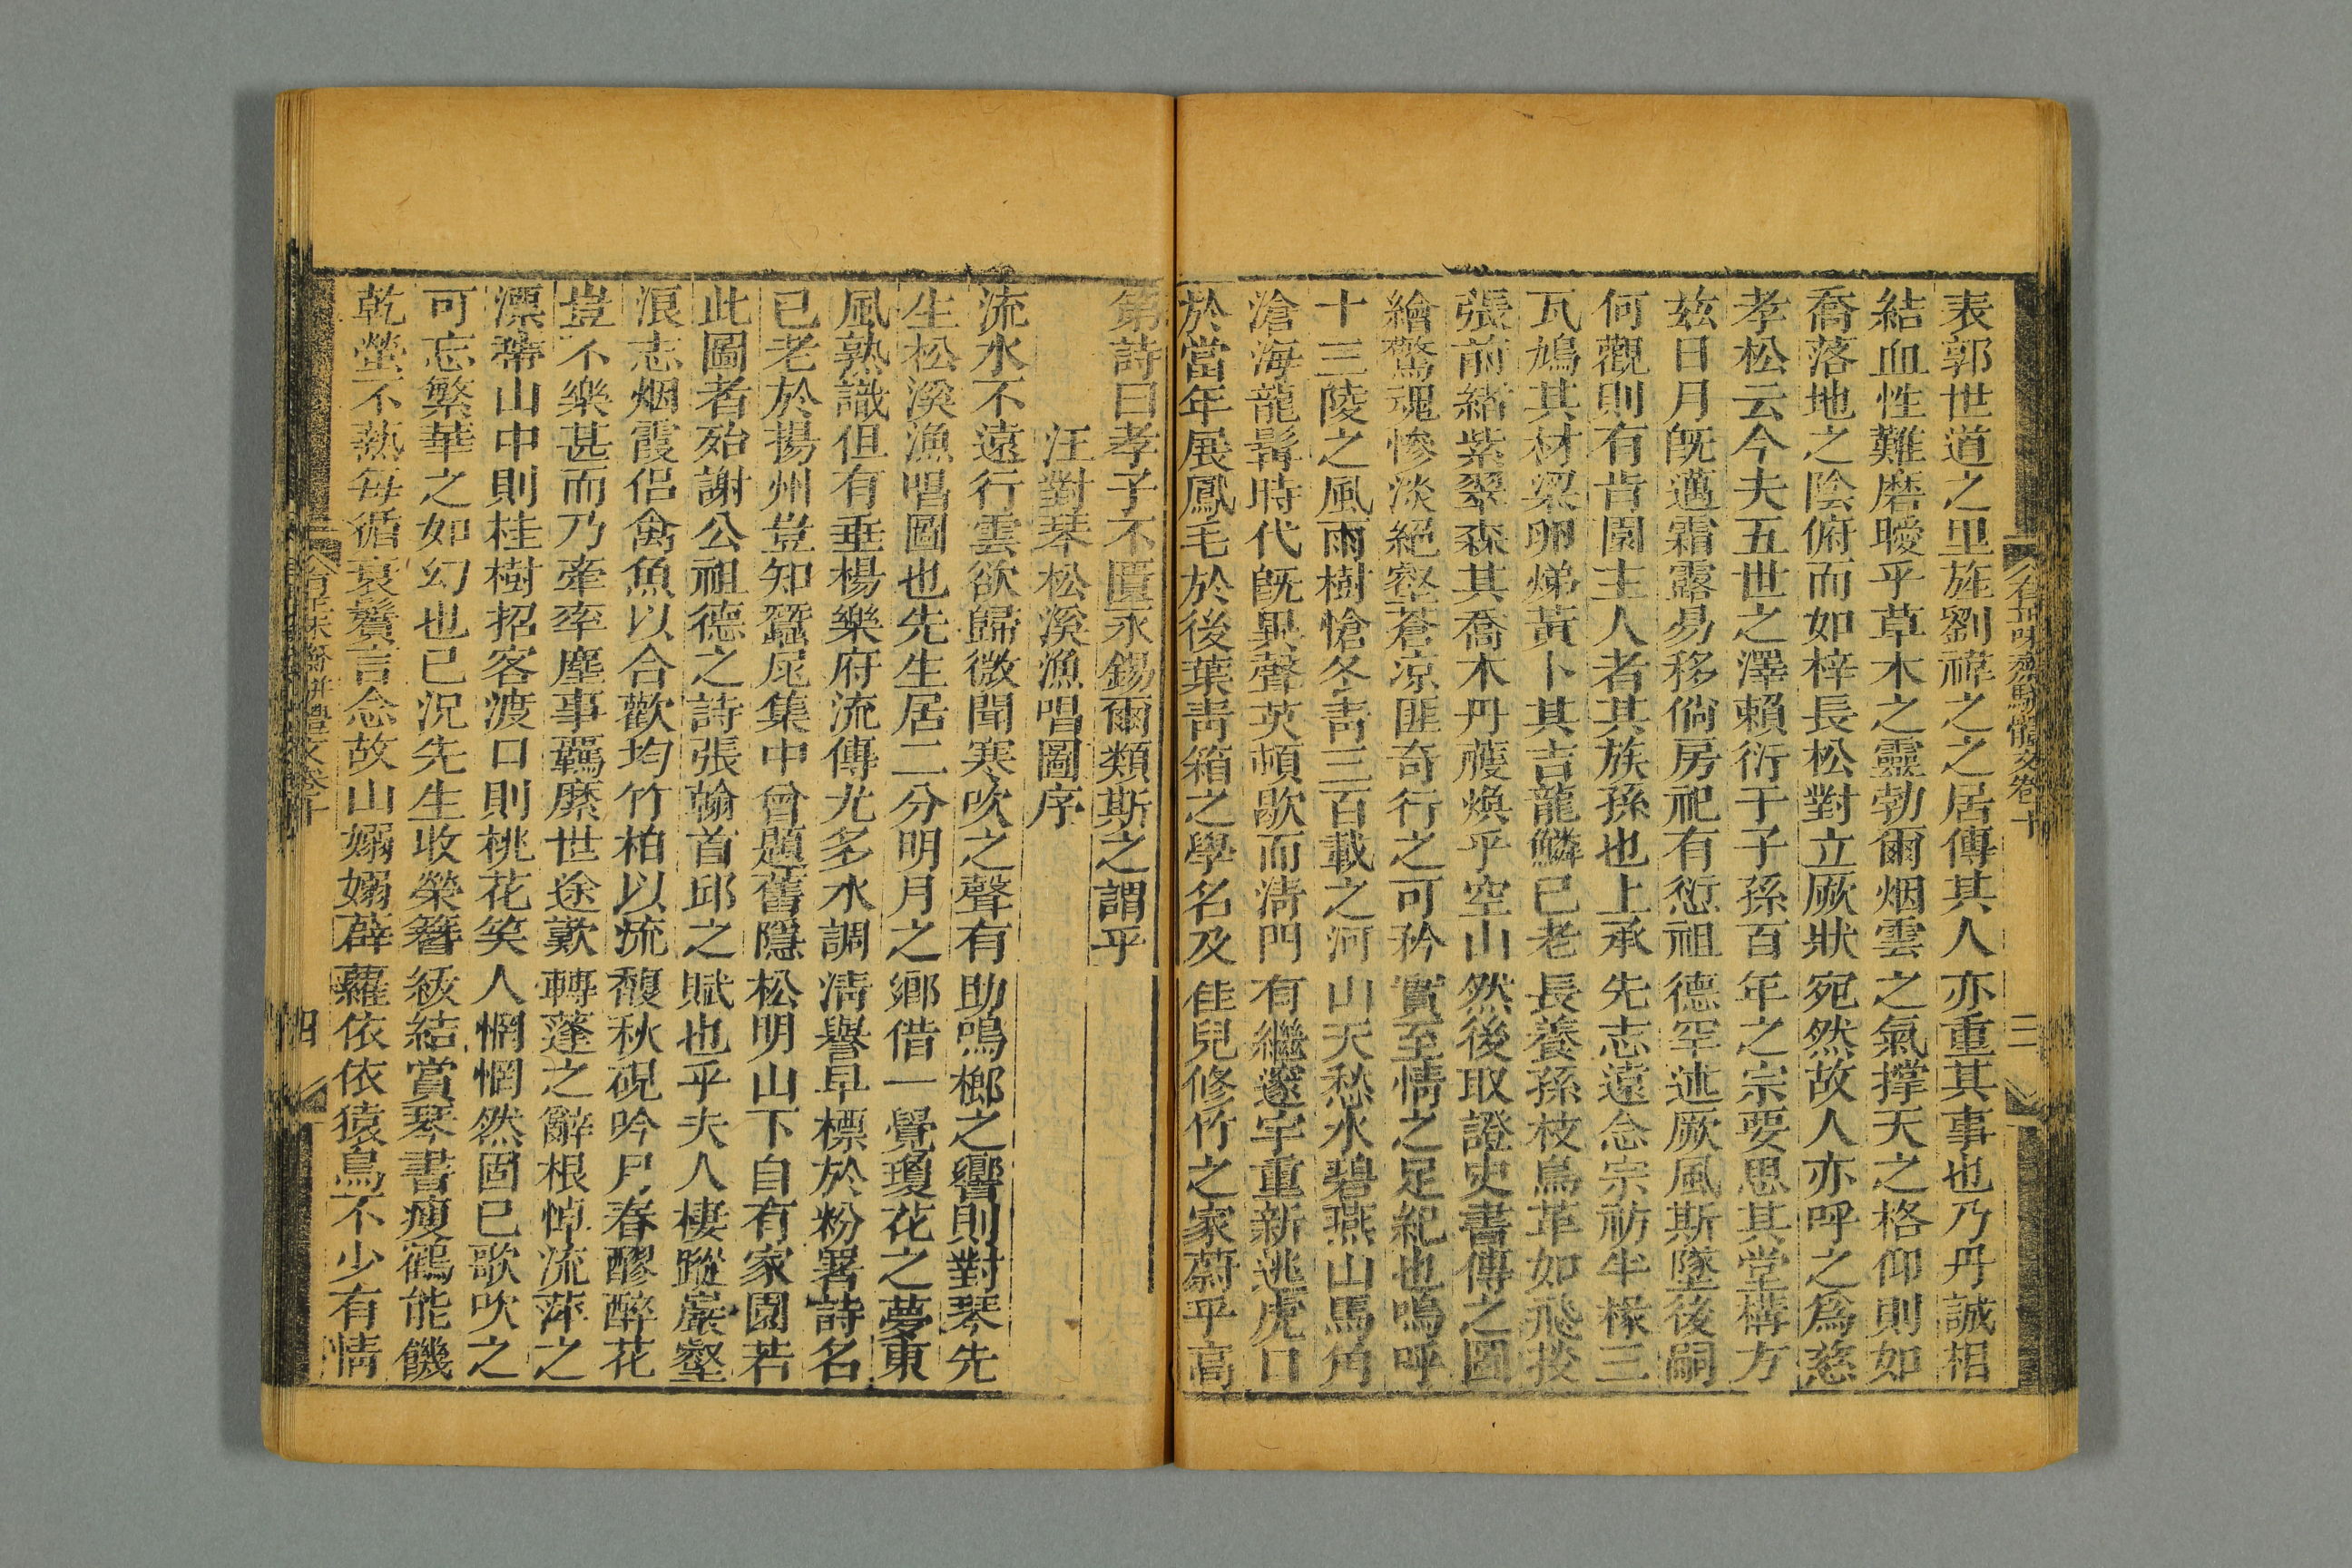 有正味齋駢體文卷十
三
表郭世道之里旌劉禕之之居傳其人亦重其事也乃丹誠相
結血性難磨曖乎草木之靈勃爾烟雲之氣撑天之格仰則如
喬落地之陰俯而如梓長松對立厥狀宛然故人亦呼之爲慈
孝松云今夫五世之澤賴衍于子孫百年之宗要思其堂構方
兹日月旣邁霜露易移倘房祀有愆祖德罕述厥風斯墜後嗣
何觀則有肯園主人者其族孫也上承先志遠念宗祊半椽三
瓦鳩其材梁卵煁黃卜其吉龍鱗已老長養孫枝鳥革如飛挍
張前緒紫翠森其喬木丹雘煥乎空山然後取證史書傳之圖
繪驚魂慘淡絕壑蒼涼匪奇行之可矜實至情之足紀也嗚呼
十三陵之風雨樹愴冬靑三百載之河山天愁水碧燕山馬角
滄海龍髯時代旣異聲英頓歇而淸門有繼邃宇重新逃虎口
於當年展鳳毛於後葉靑箱之學名及佳兒修竹之家蔚乎高
第詩曰孝子不匱永錫爾類斯之謂乎
汪對琴松溪漁唱圖序
流水不遠行雲欲歸微聞寒吹之聲有助鳴榔之響則對琴先
生松溪漁唱圖也先生居二分明月之鄉借一覺瓊花之夢東
風熟識但有垂楊樂府流傳尤多水調淸譽早標於粉署詩名
已老於揚州豈知蠶尾集中曾題舊隱松明山下自有家園若
此圖者殆謝公祖德之詩張翰首邱之賦也乎夫人棲蹤巖壑
浪志烟霞侶禽魚以合歡均竹柏以流馥秋硯吟月春醪醉花
豈不樂甚而乃牽率塵事羈縻世途歎轉蓬之辭根悼流萍之
漂蒂山中則桂樹招客渡口則桃花笑人惘惘然固已歌吹之
可忘繁華之如幻也已況先生收榮簪紱結賞琴書瘦鶴能饑
乾螢不熱每循衰鬢言念故山嫋嫋薜蘿依依猿鳥不少有情
有正味齋駢體文卷十
四